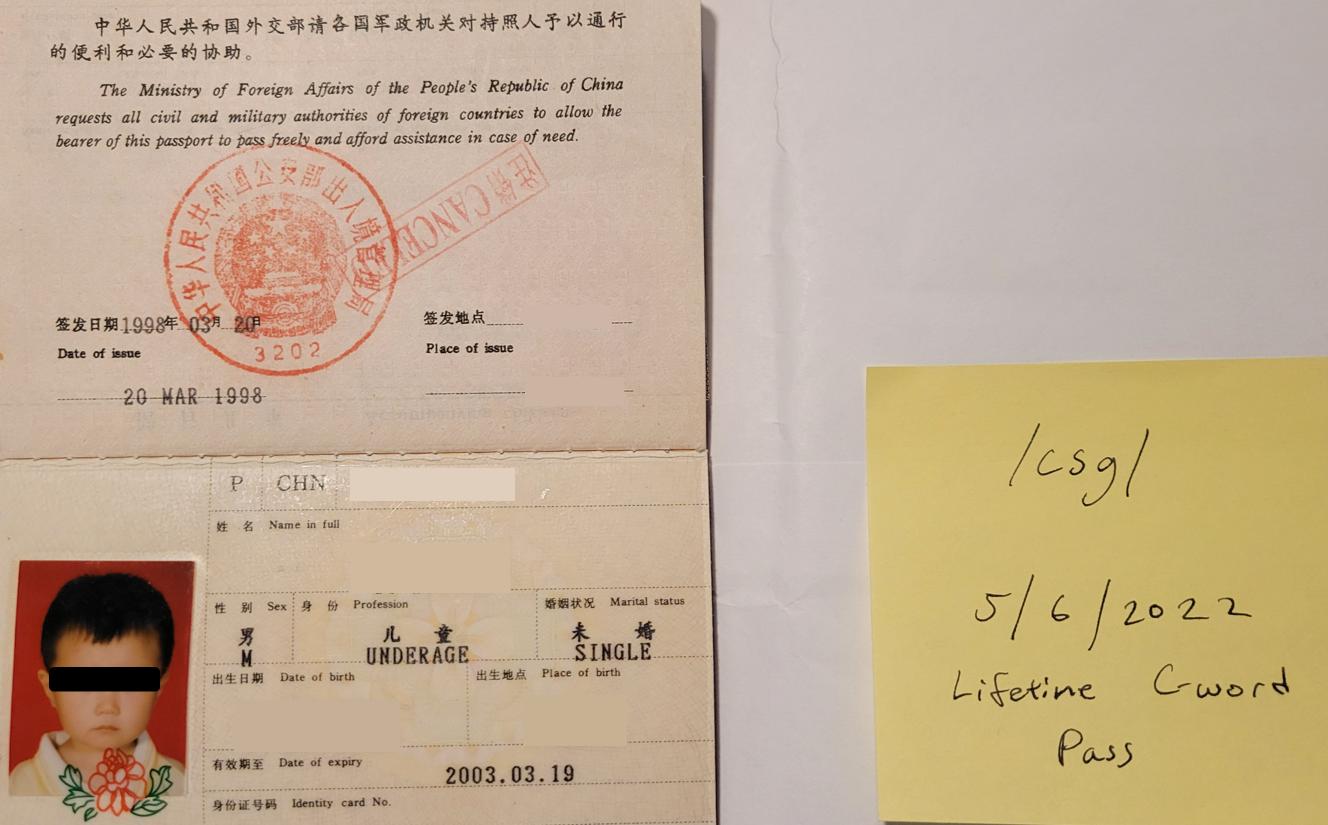 中华人民共和国外交部请各国军政机关对持照人予以通行
的便利和必要的协助。
The Ministry of Foreign Affairs of the People's Republic of China
requests all civil and military authorities of foreign countries to allow the
bearer of this passport to pass freely and afford assistance in case of need.
中华人民共和国公安部出入境管理局
3202
注销 CANCE
签发日期 1998年 03月 20日
Date of issue
20 MAR 1998
签发地点
Place of issue
P CHN
姓 名 Name in full
性 别 Sex 身 份 Profession 婚姻状况 Marital status
男 儿 童 未 婚
M UNDERAGE SINGLE
出生日期 Date of birth 出生地点 Place of birth
有效期至 Date of expiry
2003.03.19
身份证号码 Identity card No.
/csg/
5/6/2022
Lifetime C-word
Pass